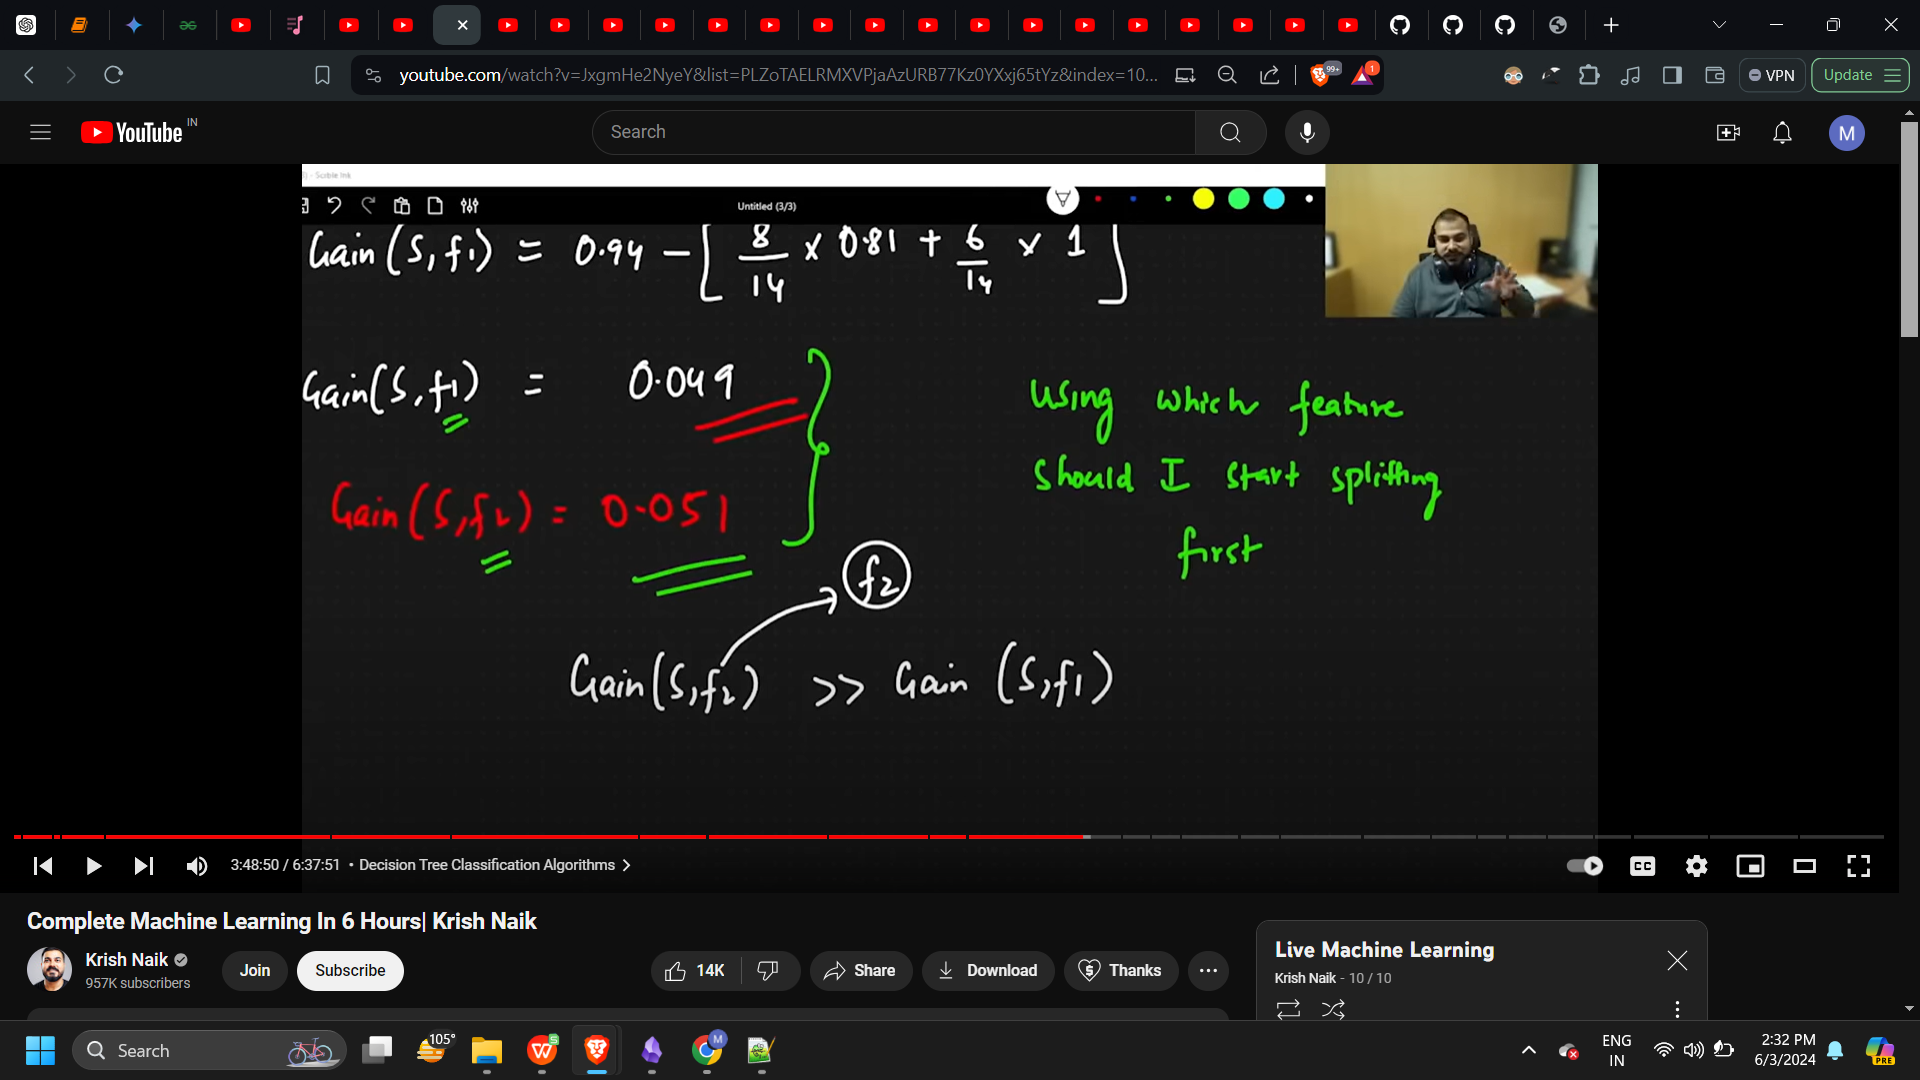 youtube.com/watch?v=JxgmHe2NyeY&list=PLZoTAELRMXVPjaAzURB77Kz0YXxj65tYz&index=10...
99+
1
VPN
Update
YouTube IN
Search
M
- Scrible Ink
Untitled (3/3)
Gain (S, f1) = 0.94 - [ 8/14 x 0.81 + 6/14 x 1 ]
Gain(S, f1) = 0.049
Using which feature
should I start splitting
first
Gain (S, f2) = 0.051
f2
Gain(S, f2) >> Gain (S, f1)
3:48:50 / 6:37:51 • Decision Tree Classification Algorithms
CC
Complete Machine Learning In 6 Hours| Krish Naik
Krish Naik
957K subscribers
Join
Subscribe
14K
Share
Download
Thanks
Live Machine Learning
Krish Naik - 10 / 10
Search
105°
M
ENG
IN
2:32 PM
6/3/2024
PRE